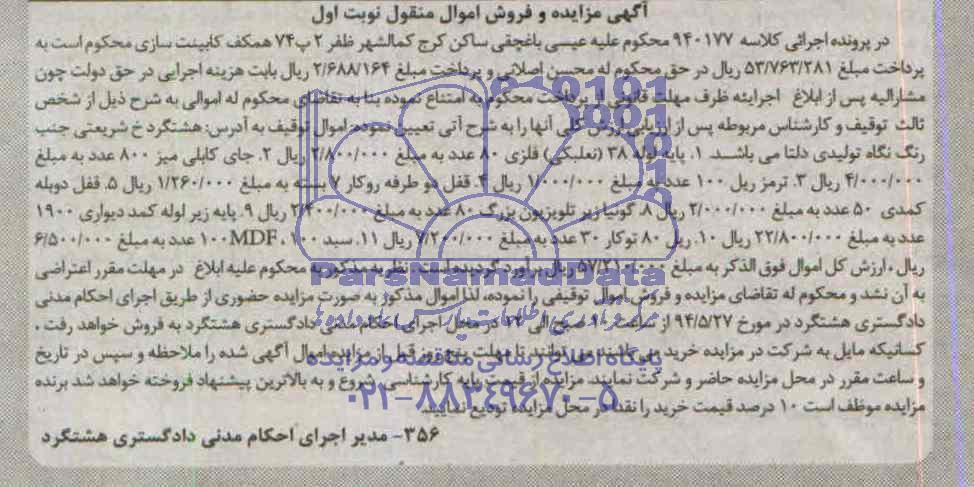 آگهی مزایده و فروش اموال منقول نوبت اول
در پرونده اجرائی کلاسه ۹۴۰۱۷۷ محکوم علیه عیسی باغچقی ساکن کرج کمالشهر ظفر ۲ پ۷۴ همکف کابینت سازی محکوم است به
پرداخت مبلغ ۵۳/۷۶۳/۲۸۱ ریال در حق محکوم له محسن اصلانی و پرداخت مبلغ ۲/۶۸۸/۱۶۴ ریال بابت هزینه اجرایی در حق دولت چون
مشارالیه پس از ابلاغ اجرائیه ظرف مهلت قانونی از پرداخت محکوم به امتناع نموده بنا به تقاضای محکوم له اموالی به شرح ذیل از شخص
ثالث توقیف و کارشناس مربوطه پس از ارزیابی ارزش کلی آنها را به شرح آتی تعیین نموده: اموال توقیف به آدرس: هشتگرد خ شریعتی جنب
رنگ نگاه تولیدی دلتا می باشد. ۱. پایه لوله ۳۸ (نعلبکی) فلزی ۸۰ عدد به مبلغ ۲/۸۰۰/۰۰۰ ریال ۲. جای کابلی میز ۸۰۰ عدد به مبلغ
۴/۰۰۰/۰۰۰ ریال ۳. ترمز ریل ۱۰۰ عدد به مبلغ ۱/۰۰۰/۰۰۰ ریال ۴. قفل دو طرفه روکار ۷ بسته به مبلغ ۱/۲۶۰/۰۰۰ ریال ۵. قفل دوبله
کمدی ۵۰ عدد به مبلغ ۲/۰۰۰/۰۰۰ ریال ۸. گونیا زیر تلویزیون بزرگ ۸۰ عدد به مبلغ ۲/۴۰۰/۰۰۰ ریال ۹. پایه زیر لوله کمد دیواری ۱۹۰۰
عدد به مبلغ ۲۲/۸۰۰/۰۰۰ ریال ۱۰. ریل ۸۰ توکار ۳۰ عدد به مبلغ ۷/۲۰۰/۰۰۰ ریال ۱۱. سبد ۱۰۰، MDF۱۰۰ عدد به مبلغ ۶/۵۰۰/۰۰۰
ریال، ارزش کل اموال فوق الذکر به مبلغ ۵۷/۲۱۰/۰۰۰ ریال برآورد گردیده است. نظریه مذکور به محکوم علیه ابلاغ در مهلت مقرر اعتراضی
به آن نشد و محکوم له تقاضای مزایده و فروش اموال توقیفی را نموده، لذا اموال مذکور به صورت مزایده حضوری از طریق اجرای احکام مدنی
دادگستری هشتگرد در مورخ ۹۴/۵/۲۷ از ساعت ۱۰ صبح الی ۱۲ در محل اجرای احکام مدنی دادگستری هشتگرد به فروش خواهد رفت.
کسانیکه مایل به شرکت در مزایده خرید می باشند می توانند تا مهلت پنج روز قبل از مزایده اموال آگهی شده را ملاحظه و سپس در تاریخ
و ساعت مقرر در محل مزایده حاضر و شرکت نمایند. مزایده از قیمت پایه کارشناسی شروع و به بالاترین پیشنهاد فروخته خواهد شد برنده
مزایده موظف است ۱۰ درصد قیمت خرید را نقدا در محل مزایده تودیع نمایند
۳۵۶- مدیر اجرای احکام مدنی دادگستری هشتگرد
ParsNamadData
پایگاه اطلاع رسانی مناقصه و مزایده
۰۲۱-۸۸۳۴۹۶۷۰-۵